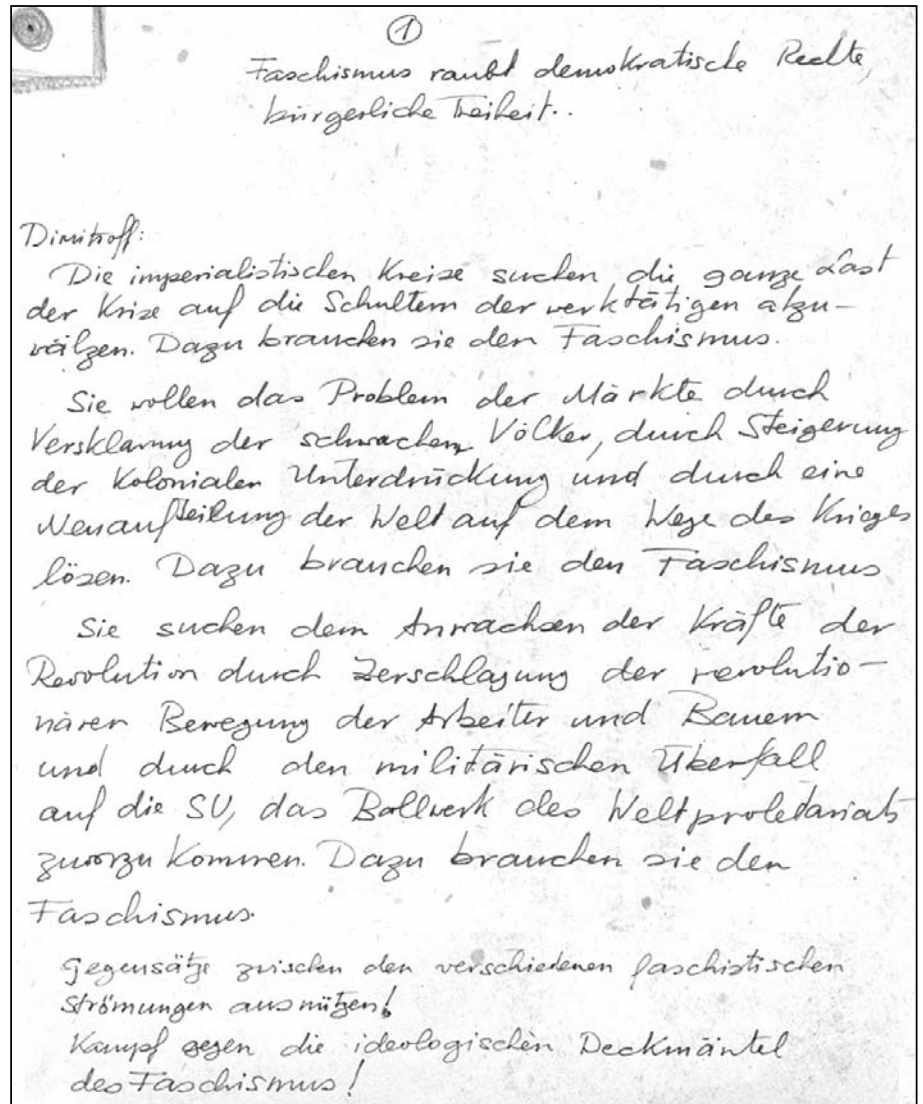 1
Faschismus raubt demokratische Rechte,
bürgerliche Freiheit..
Dimitroff:
Die imperialistischen Kreise suchen die ganze Last
der Krise auf die Schultern der werktätigen abzu-
wälzen. Dazu brauchen sie den Faschismus.
Sie wollen das Problem der Märkte durch
Versklavung der schwachen Völker, durch Steigerung
der Kolonialen Unterdrückung und durch eine
Neuaufteilung der Welt auf dem Wege des Krieges
lösen. Dazu brauchen sie den Faschismus
Sie suchen dem Anwachsen der Kräfte der
Revolution durch Zerschlagung der revolutio-
nären Bewegung der Arbeiter und Bauern
und durch den militärischen Überfall
auf die SU, das Bollwerk des Weltproletariats
zuvorzukommen. Dazu brauchen sie den
Faschismus.
Gegensätze zwischen den verschiedenen faschistischen
Strömungen ausnützen!
Kampf gegen die ideologischen Deckmäntel
des Faschismus!